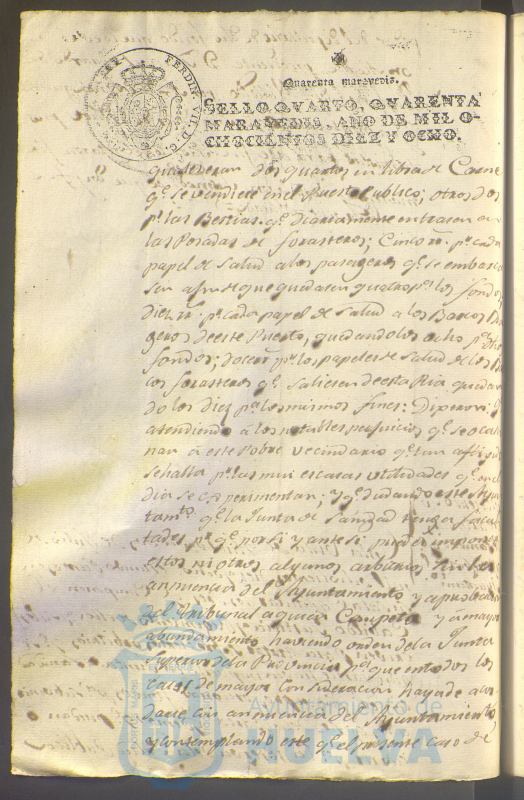 FERDIN. VII. D. G.
Quarenta maravedis.
SELLO QVARTO, QVARENTA
MARAVEDIS, AÑO DE MIL O-
CHOCIENTOS DIEZ Y OCHO.
dos quartos en libra de Carne
qe. se vendiere en el Puesto publico; otros dos
pr. las Bestias qe. diariamente entrasen en
las Posadas de forasteros; Cinco rs. pr. cada
papel de Salud a los pasageros qe. se embarca
sen a fin de que quedasen quatro pa. los fondos
diez rs. pr. cada papel de Salud a los Barcos
geros de este Puerto, quedando los ocho pa. dhos
fondos; doce rs. pr. los papeles de Salud de los Bar
cos forasteros qe. saliesen de esta Ria quedan
do los diez pa. los mismos fines: Dixeron: q
atendiendo á los notables perjuicios qe. se ocasio
nan á este Pobre vecindario qe. tan afligido
se halla pr. las mui escasas utilidades qe. en el
dia se experimentan; y qe. dudando este Ayun
tamto. qe. la Junta de Sanidad tenga facul
tades pa. qe. por si y ante si pueda imponer
estos ni otros algunos arbitrios sin la
anuencia del Ayuntamiento y aprobacion
del Tribunal a quien Competa y a mayor
abundamiento haviendo orden de la Junta
Superior de la Provincia pa. que en todos los
casos de mayor Consideracion haya de acor
darse con anuencia del Ayuntamiento
y contemplando este qe. el presente caso es de
Ayuntamiento de
HUELVA